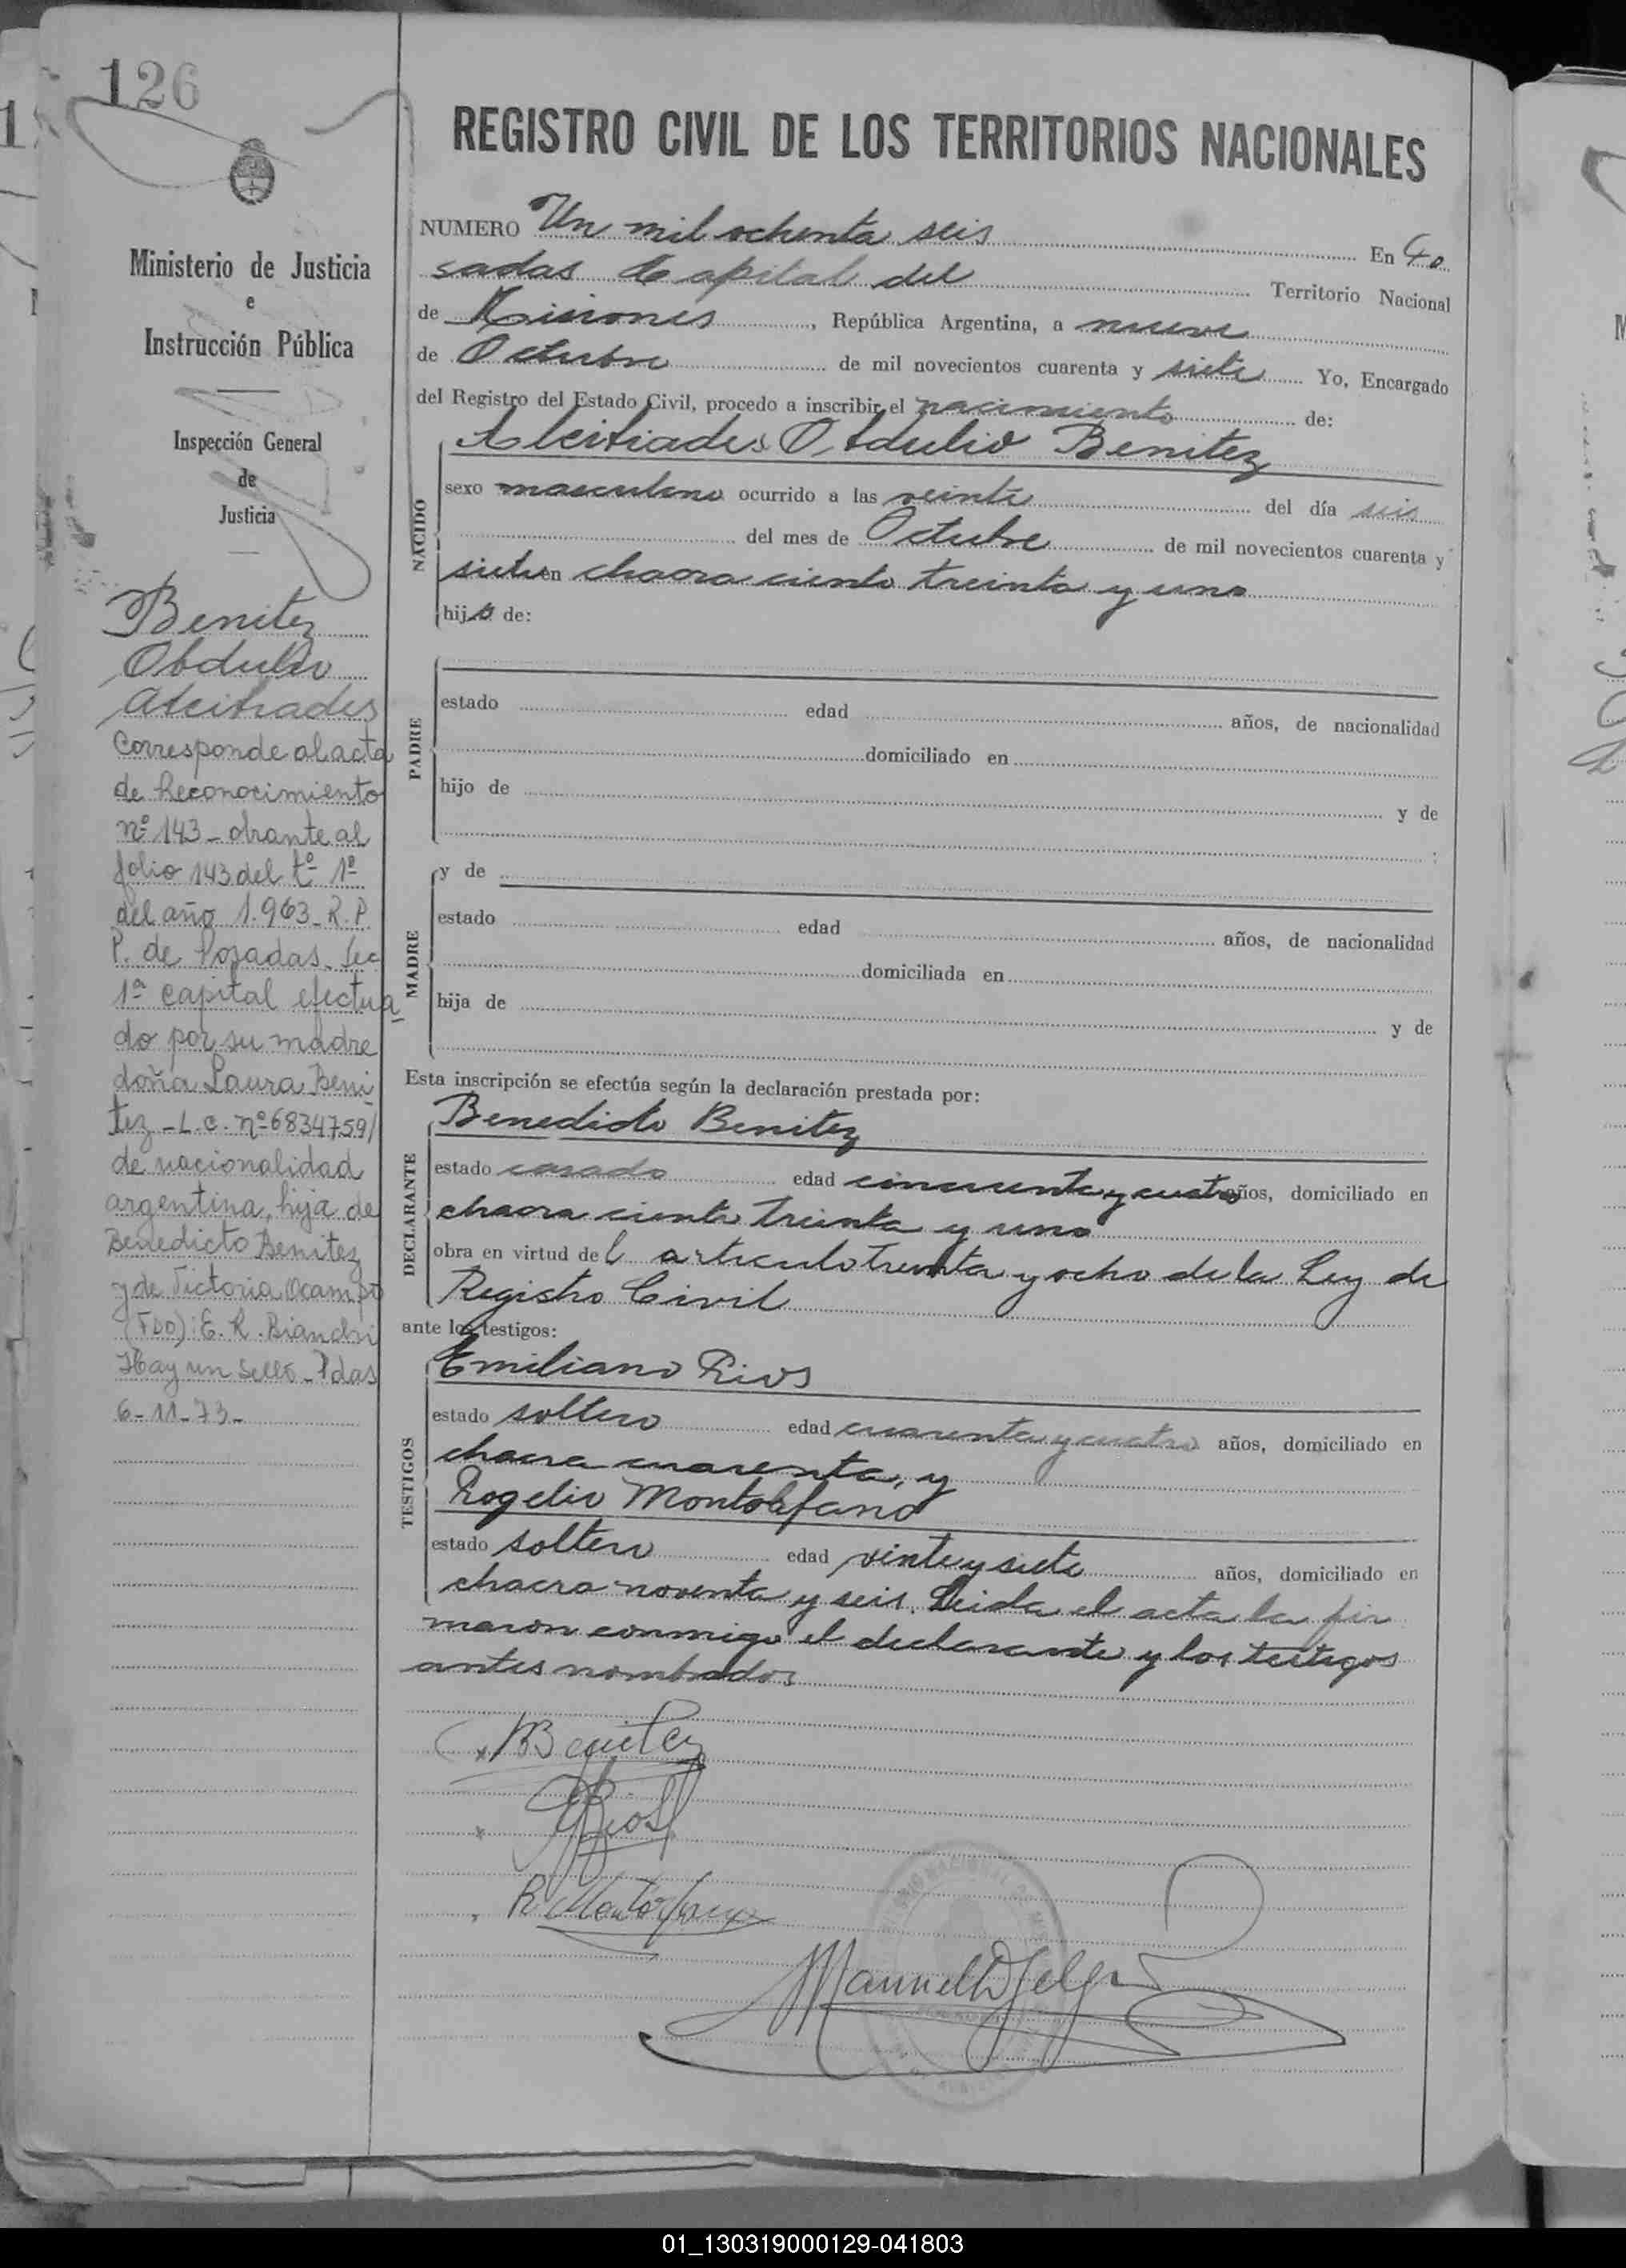 126
REGISTRO CIVIL DE LOS TERRITORIOS NACIONALES
Ministerio de Justicia
e
Instrucción Pública
Inspección General
de
Justicia
Benitez
Obdulio
Alcibiades
Corresponde al acta
de Reconocimiento
nº 143 - obrante al
folio 143 del tº 1º
del año 1.963 - R. P.
P. de Posadas - Sec
1ª Capital efectua
do por su madre
doña Laura Beni
tez - L. C. nº 6834759/
de nacionalidad
argentina, hija de
Benedicto Benitez
y de Victoria Ocampo
(Fdo): E. R. Bianchi
Hay un sello - Pdas
6-11-73-
NUMERO Un mil ochenta seis En Po
sadas Capital del Territorio Nacional
de Misiones, República Argentina, a nueve
de Octubre de mil novecientos cuarenta y siete Yo, Encargado
del Registro del Estado Civil, procedo a inscribir el nacimiento de:
NACIDO
Alcibiades Obdulio Benitez
sexo masculino ocurrido a las veinte del día seis
del mes de Octubre de mil novecientos cuarenta y
siete en chacra ciento treinta y uno
hijo de:
PADRE
estado edad años, de nacionalidad
domiciliado en
hijo de y de
;
MADRE
y de
estado edad años, de nacionalidad
domiciliada en
hija de y de
Esta inscripción se efectúa según la declaración prestada por:
DECLARANTE
Benedicto Benitez
estado casado edad cincuenta y cuatro años, domiciliado en
chacra ciento treinta y uno
obra en virtud del articulo treinta y ocho de la Ley de
Registro Civil
ante los testigos:
TESTIGOS
Emiliano Rios
estado soltero edad cuarenta y cuatro años, domiciliado en
chacra cuarenta, y
Rogelio Montorfano
estado soltero edad veinte y siete años, domiciliado en
chacra noventa y seis. Leida el acta la fir
maron conmigo el declarante y los testigos
antes nombrados
B Benitez
Rios
R Montorfano
01_130319000129-041803